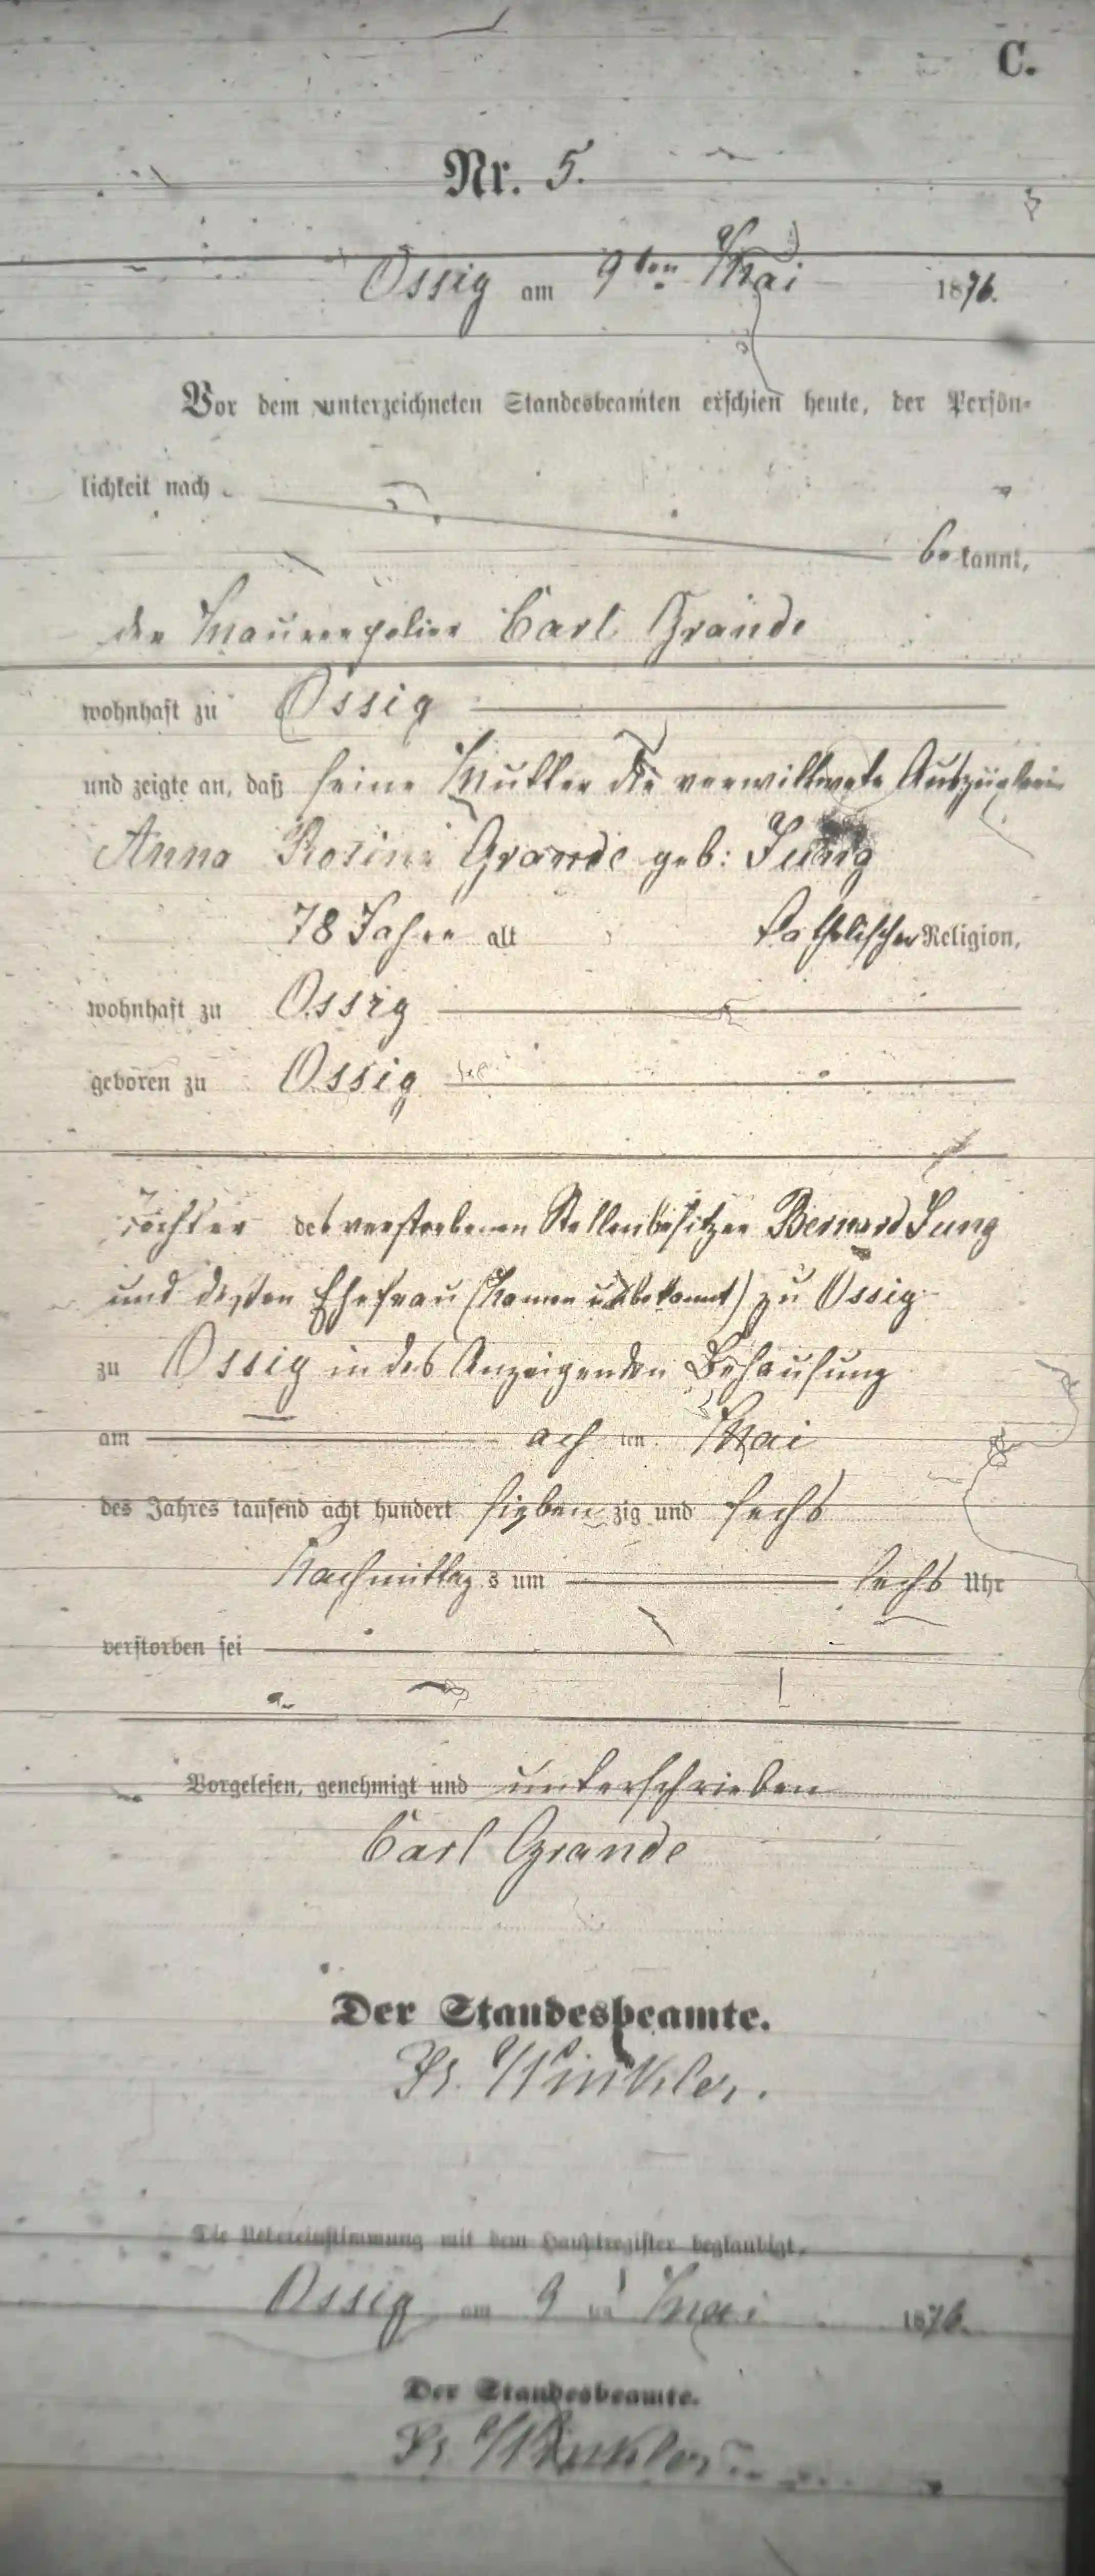 C.
Nr. 5.
Ossig am 9ten Mai 1876.
Vor dem unterzeichneten Standesbeamten erschien heute, der Persön-
lichkeit nach
bekannt,
der Maurerpolier Carl Grande
wohnhaft zu Ossig
und zeigte an, daß seine Mutter die verwittwete Auszüglerin
Anna Rosina Grande geb: Jung
78 Jahre alt katholischer Religion,
wohnhaft zu Ossig
geboren zu Ossig
Tochter des verstorbenen Stellenbesitzer Bernard Jung
und dessen Ehefrau (Namen unbekannt) zu Ossig
zu Ossig in des Anzeigenden Behausung
am achten Mai
des Jahres tausend acht hundert siebenzig und sechs
Nachmittags um sechs Uhr
verstorben sei
Vorgelesen, genehmigt und unterschrieben
Carl Grande
Der Standesbeamte.
Fr. Winkler.
Die Uebereinstimmung mit dem Hauptregister beglaubigt.
Ossig am 9ten Mai 1876.
Der Standesbeamte.
Fr. Winkler